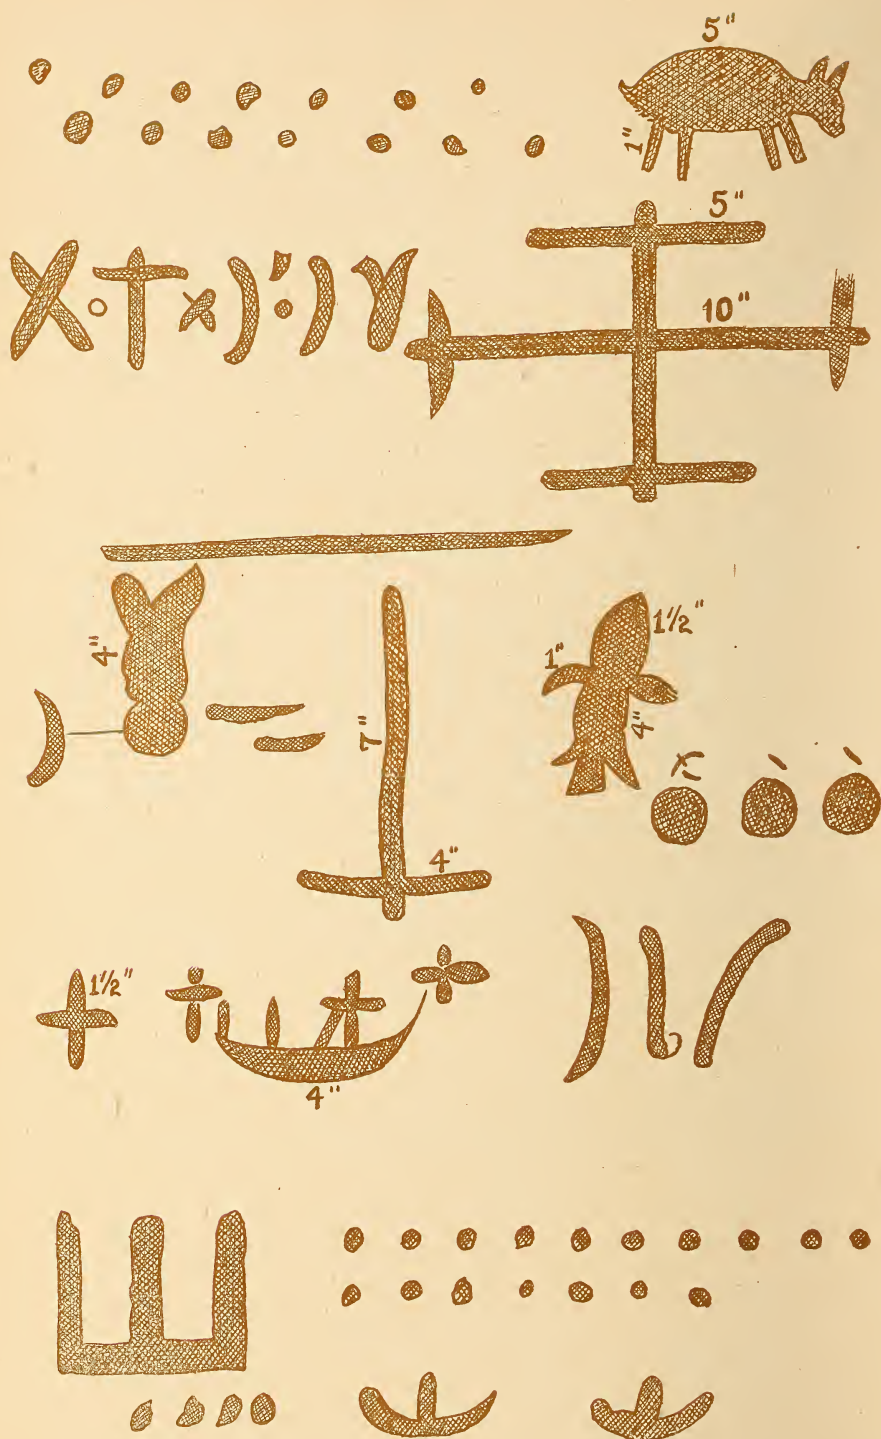 5"
1"
5"
10"
4"
7"
1½"
1"
4"
4"
1½"
4"